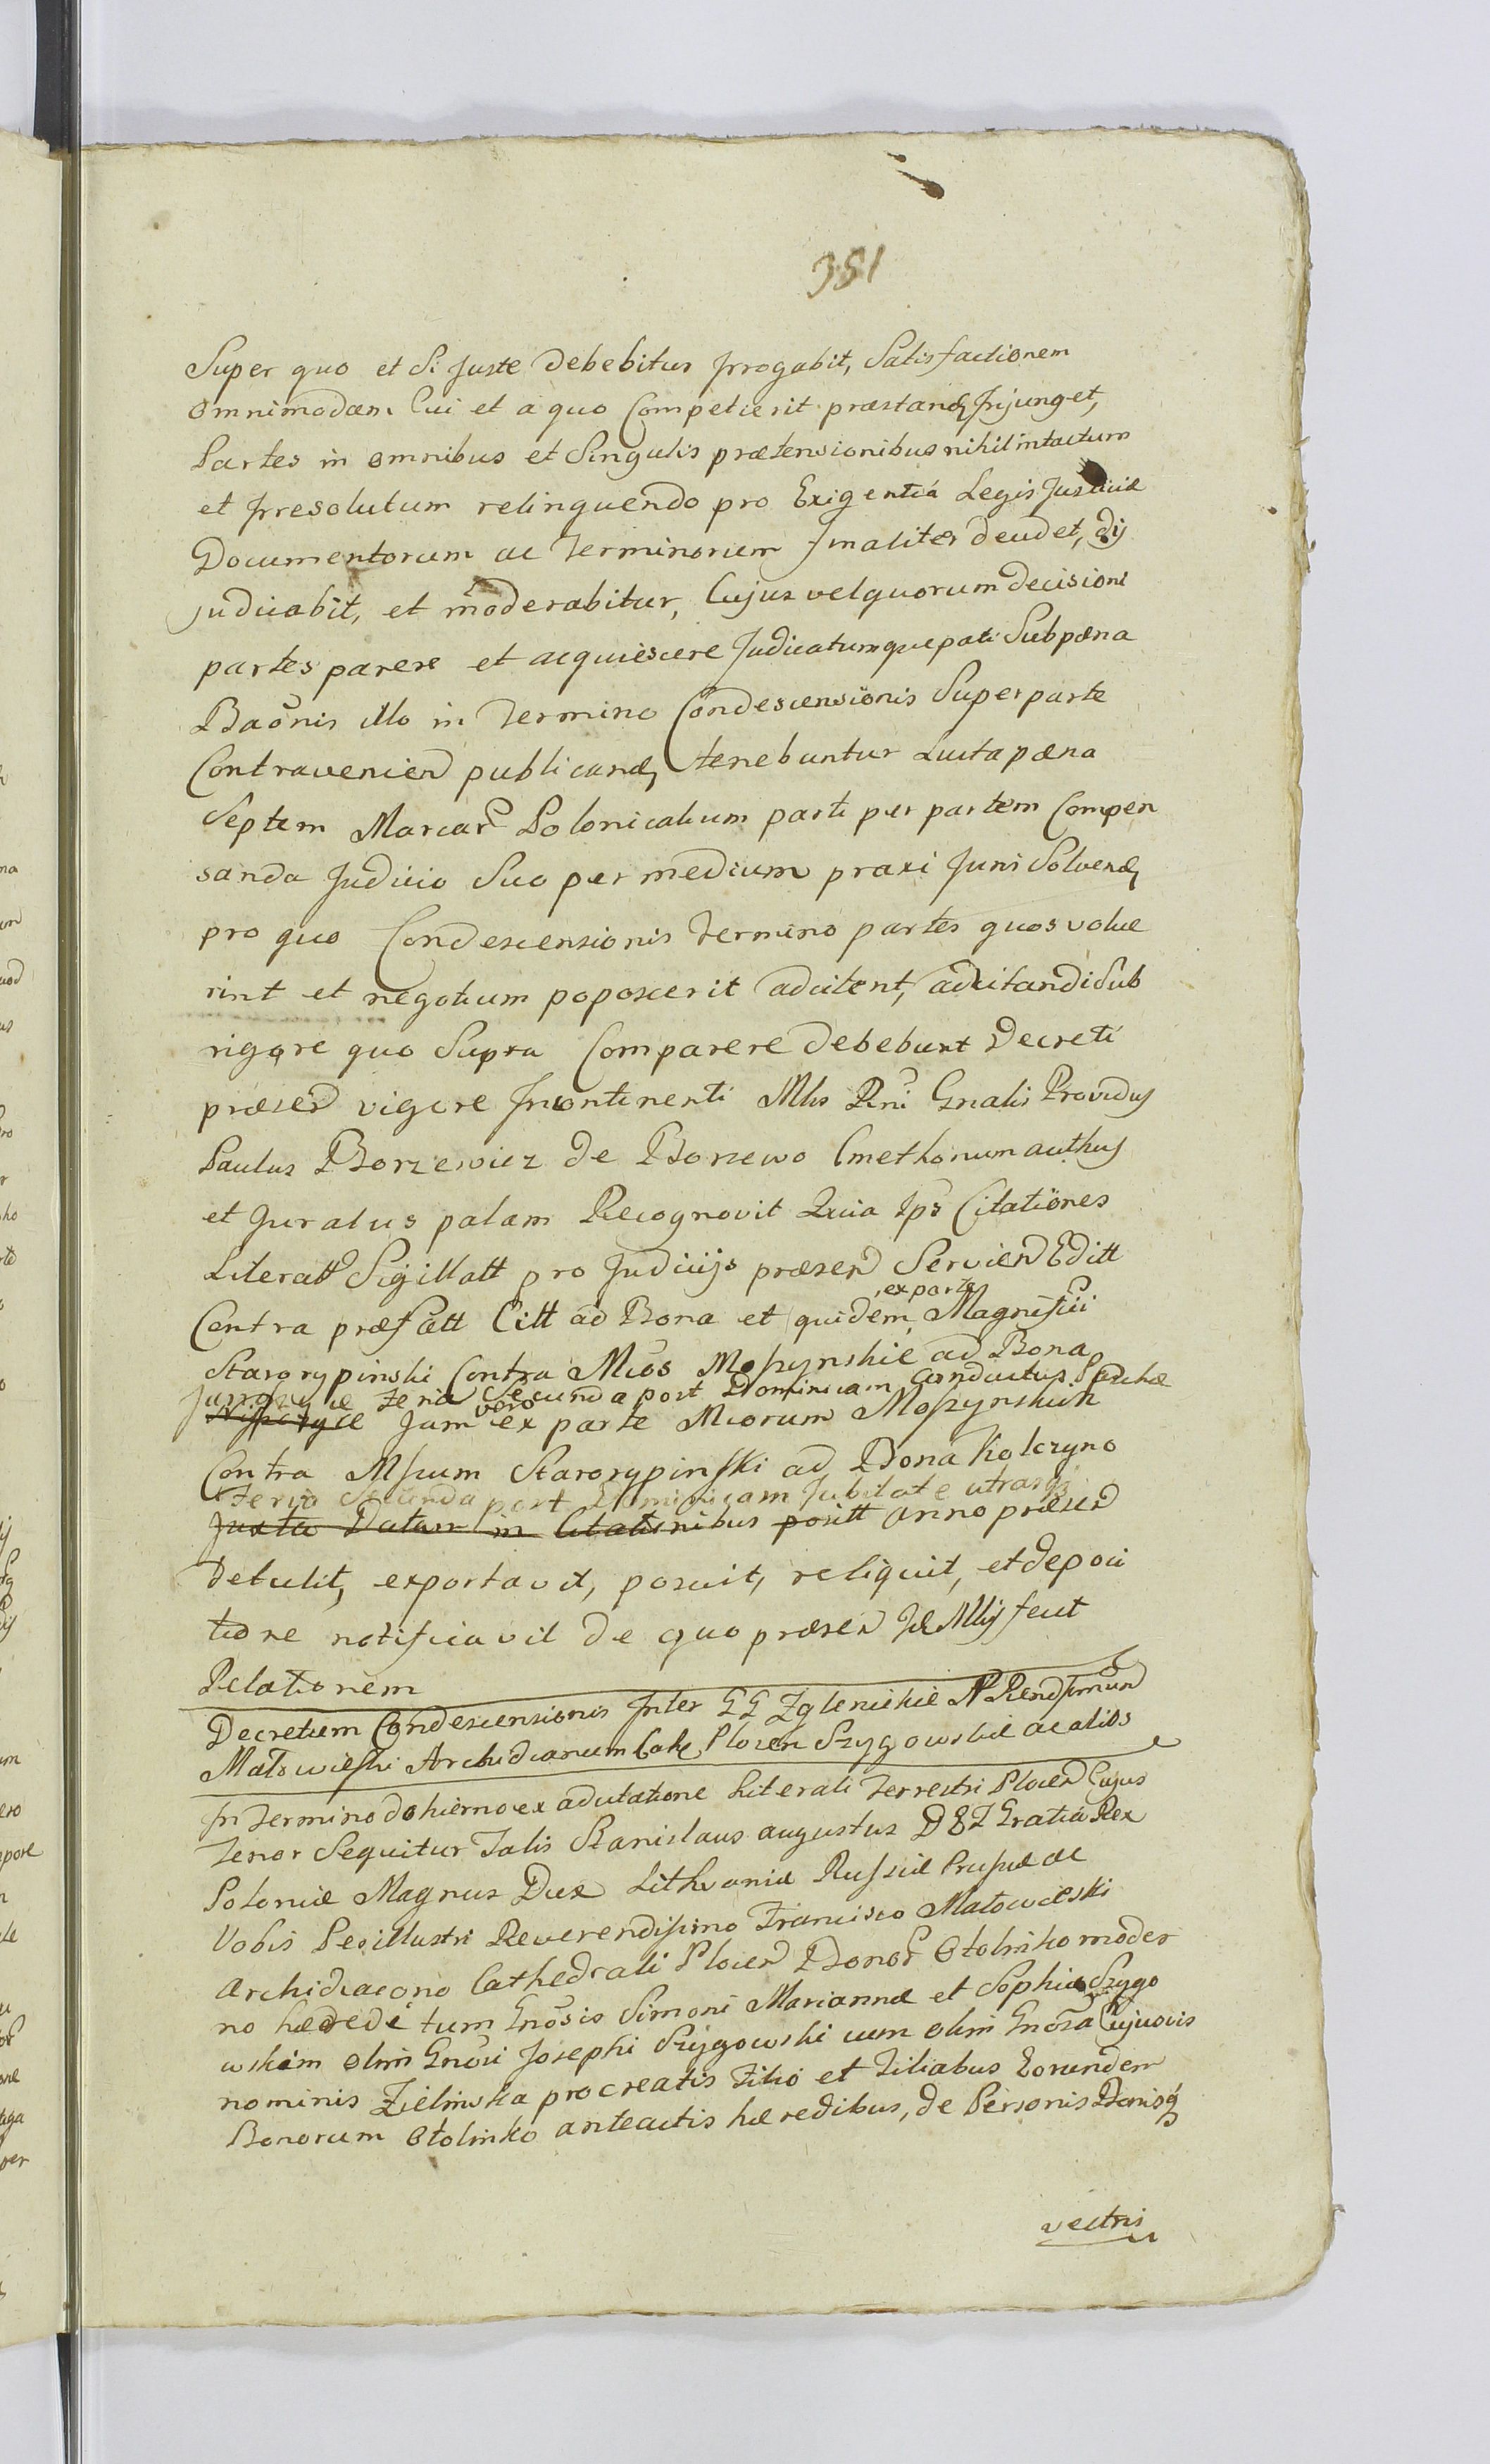 351
Super quo et Si Juste debebitur Irrogabit, Satisfactionem
omnimodam Cui et a quo Competierit præstand Injunget,
Partes in omnibus et Singulis prætensionibus nihil intactum
et Irresolutum relinquendo pro Exigentiâ Legis Justitiæ
Documentorum ac Terminorum finaliter decidet, dij
judicabit, et moderabitur, Cujus vel quorum decisioni
partes parere et acquiescere Judicatumque pati Sub pæna
Baõnis illo in Termino Condescensionis Super parte
Contravenien publicand tenebuntur Lucta pæna
Septem Marcar Polonicalium parti per partem Compen
sanda Judicio Suo per medium praxi Juris Solvend
pro quo Condescensionis Termino partes quos volue
rint et negotium poposcerit adcitent, adcitandi Sub
rigore quo Supra Comparere debebunt Decreti
præsen vigore Incontinenti Mlis Rni Gnalis Providus
Paulus Borzewicz de Borzewo Cmethonum authus
et Juratus palam Recognovit Quia Ips Citationes
Literatt Sigillatt pro Judicijs præsen Servien Editt
Contra præfatt Citt ad Bona et quidem ex parte Magnifici
Starorypinski Contra Mcos Moszynskie ad Bona
feria Secunda post Dominicam Conductus Paschæ
Jam vero ex parte Mcorum Moszynskich
Contra Mficum Starorypinski ad Bona Kolczyno
Feria Secunda post Dominicam Jubilate utrasq
Juxta Datam in Citationibus positt Anno præsen
detulit, exportavit, posuit, reliquit, et deposi
tione notificavit de quo præsen Id Mlis fecit
Relationem
Decretum Condescensionis Inter GG Zglenickie N Rendsimum
Matowieski Archidianum Cath Plocen Szygowskie ac alios
In Termino dohierno ex adcitatione Literali Terrestri Plocen Cujus
Tenor Sequitur Talis Stanislaus augustus D G Gratia Rex
Poloniæ Magnus Dux Lithvaniæ Russiæ Prussiæ ac
Vobis Perillustri Reverendissimo Francisco Matowieski
Archidiacono Cathedrali Plocen Bonor Otolinko moder
no hæredi tum Gnosis Simoni Mariannæ et Sophiæ Szygo
wskim olim Gnosi Josephi Szygowski cum olim Gnosa Cujusvis
nominis Zielinska procreatis Filio et Filiabus Eorundem
Bonorum Otolinko anteactis hæredibus, de Personis Bonisq
vestris